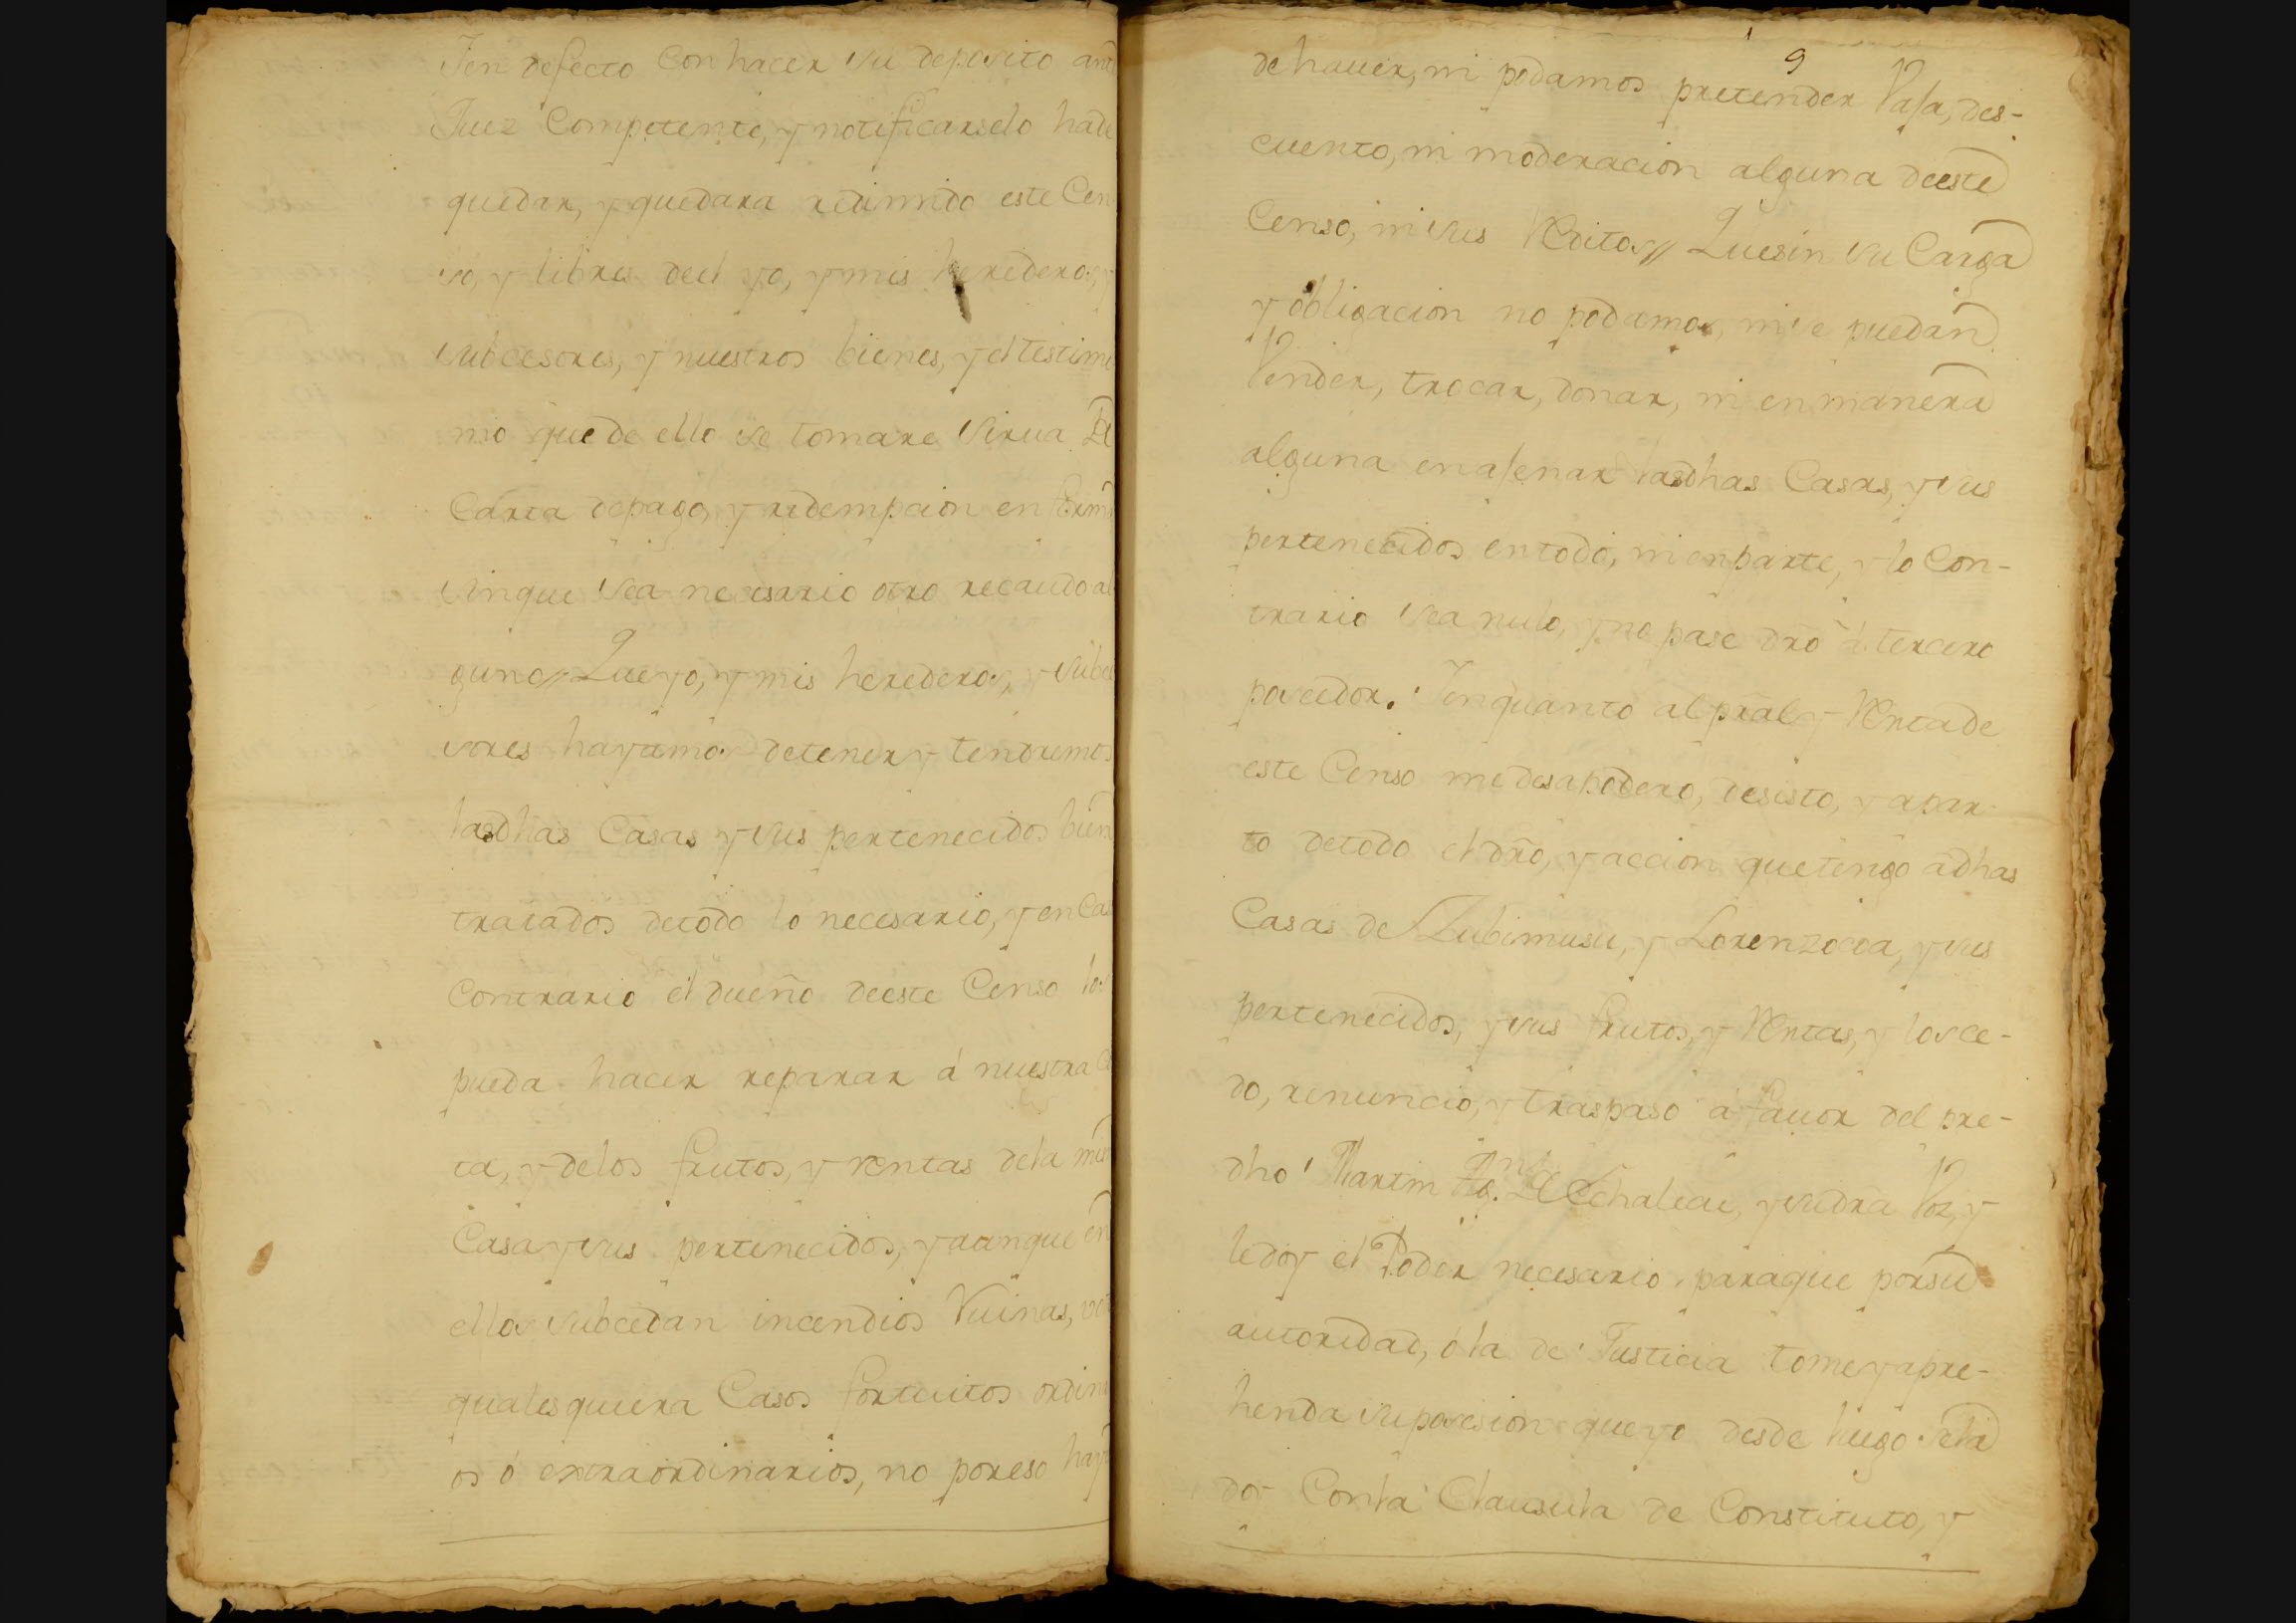 Y en defecto con hacer su deposito ant
Juez Competente, y notificarselo hade
quedar, y quedara redimido este Cen
so, y libres deel yo, y mis herederos, y
subcesores, y nuestros bienes, y el testimo
nio que de ello se tomare sirua de
Carta depago, y redempcion en form
sinque sea necesario otro recaudo al
guno // Que yo, y mis herederos, y subce
sores hayamos detener y tendremos
lasdhas Casas y sus pertenecidos bien
tratados detodo lo necesario, y en Cas
contrario el dueño deeste Censo los
pueda hacer reparar á nuestra Cos
ta, y delos frutos, y rentas dela mis
Casa y sus pertenecidos, y aunque en
ellos subcedan incendios Ruinas, vot
qualesquiera Casos fortuitos ordina
os ó extraordinarios, no poreso hay
9
de hauer, ni podamos pretender Vaja, des-
cuento, ni moderacion alguna deeste
Censo, ni sus Reditos // Quesin su Carga
y obligacion no podamos, ni se puedan
Vender, trocar, donar, ni en manera
alguna enajenar lasdhas Casas, y sus
pertenecidos entodo, ni enparte, y lo Con-
trario sea nulo, y no pase dro á tercero
poseedor. Y enquanto al pral y Renta de
este Censo me desapodero, desisto, y apar-
to detodo el dro, y accion que tengo adhas
Casas de Zubimusu, y Lorenzocoa, y sus
pertenecidos, y sus frutos, y Rentas, y los ce-
do, renuncio, y traspaso á fauor del pre-
dho Martin Anto. de Echaleue, y sudra Voz, y
ledoy el Poder necesario, paraque porsu
autoridad, ó la de Justicia tome y apre-
henda su posesion que yo desde luego sela
doy Conla Clausula de Constituto, y